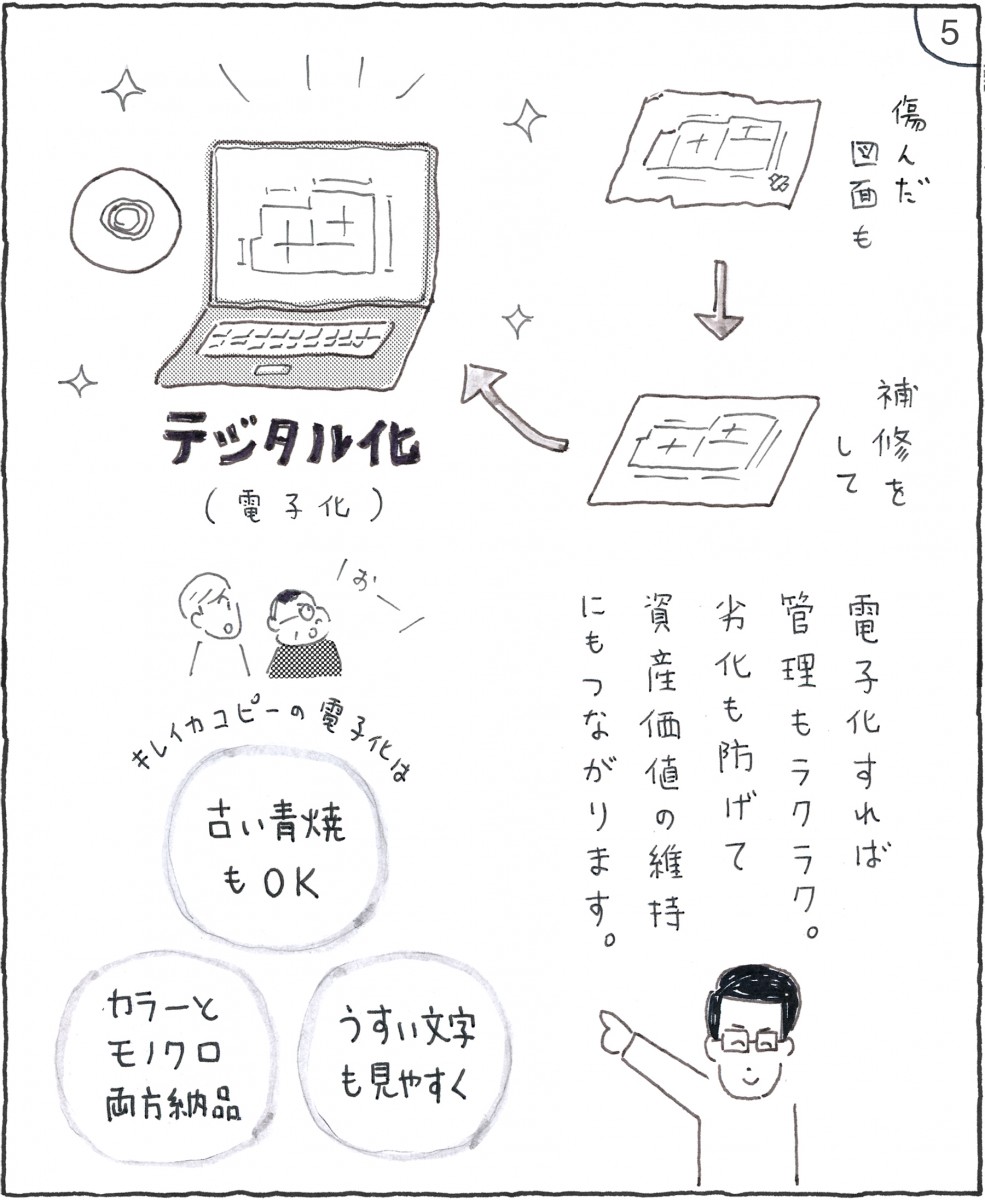 5
傷んだ
図面も
補修を
して
デジタル化
(電子化)
おー
電子化すれば
管理もラクラク。
劣化も防げて
資産価値の維持
にもつながります。
キレイカコピーの電子化は
古い青焼
もOK
カラーと
モノクロ
両方納品
うすい文字
も見やすく